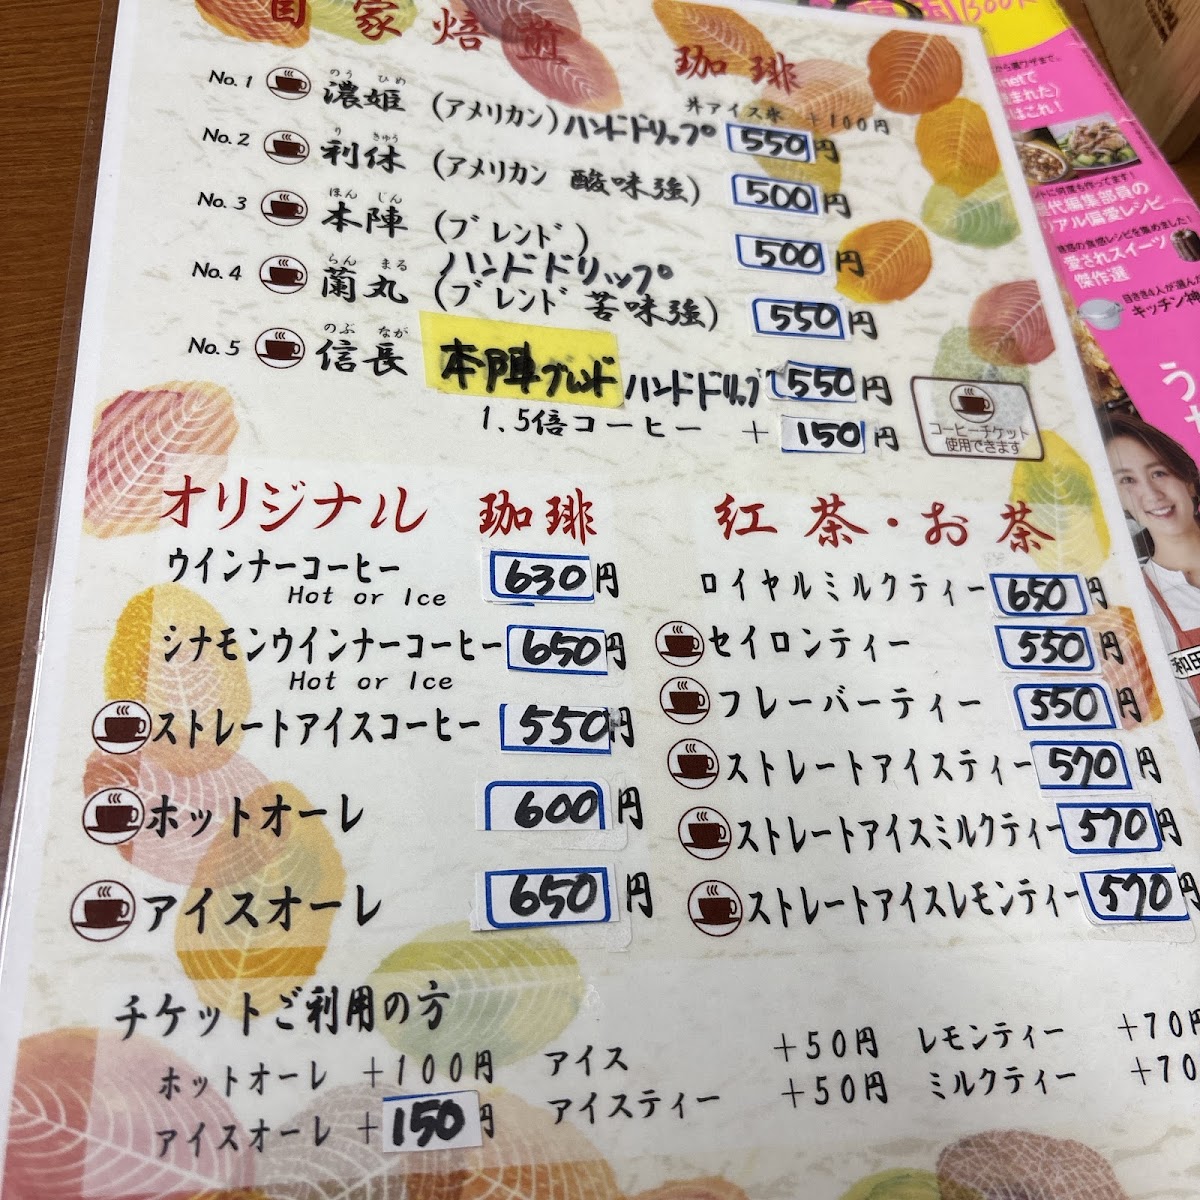 自家焙煎 珈琲
外アイス氷 +100円
No.1 濃姫 のうひめ (アメリカン) ハンドドリップ 550円
No.2 利休 りきゅう (アメリカン 酸味強) 500円
No.3 本陣 ほんじん (ブレンド) 500円
ハンドドリップ
No.4 蘭丸 らんまる (ブレンド 苦味強) 550円
No.5 信長 のぶなが 本陣ブレンド ハンドドリップ 550円
1.5倍コーヒー +150円
コーヒーチケット
使用できます
オリジナル 珈琲
ウインナーコーヒー 630円
Hot or Ice
シナモンウインナーコーヒー 650円
Hot or Ice
ストレートアイスコーヒー 550円
ホットオーレ 600円
アイスオーレ 650円
紅茶・お茶
ロイヤルミルクティー 650円
セイロンティー 550円
フレーバーティー 550円
ストレートアイスティー 570円
ストレートアイスミルクティー 570円
ストレートアイスレモンティー 570円
チケットご利用の方
ホットオーレ +100円 アイス +50円 レモンティー +70円
アイスオーレ +150円 アイスティー +50円 ミルクティー +70
BOOK
はこれ!
愛されスイーツ
傑作選
キッチン神
和田